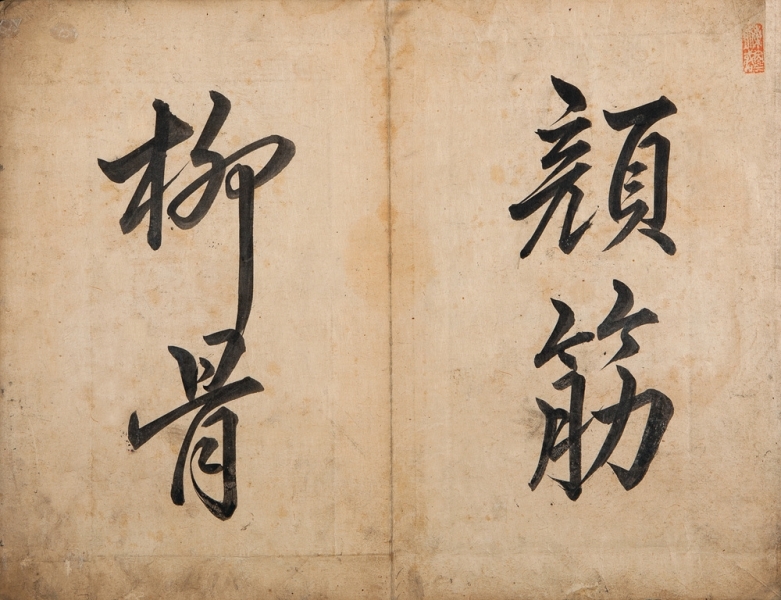 顔筋
柳骨